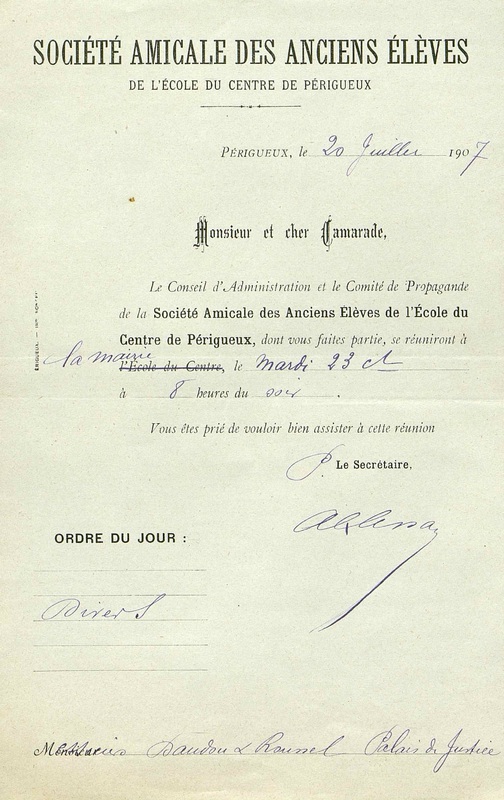 SOCIÉTÉ AMICALE DES ANCIENS ÉLÈVES
DE L'ÉCOLE DU CENTRE DE PÉRIGUEUX
PÉRIGUEUX, le 20 Juillet 1907
Monsieur et cher Camarade,
Le Conseil d'Administration et le Comité de Propagande
de la Société Amicale des Anciens Élèves de l'École du
Centre de Périgueux, dont vous faites partie, se réuniront à
la mairie
l'École du Centre, le mardi 23 ct
à 8 heures du soir.
Vous êtes prié de vouloir bien assister à cette réunion
P. Le Secrétaire,
ORDRE DU JOUR :
Divers
Messieurs Daudou & Roussel Palais de Justice